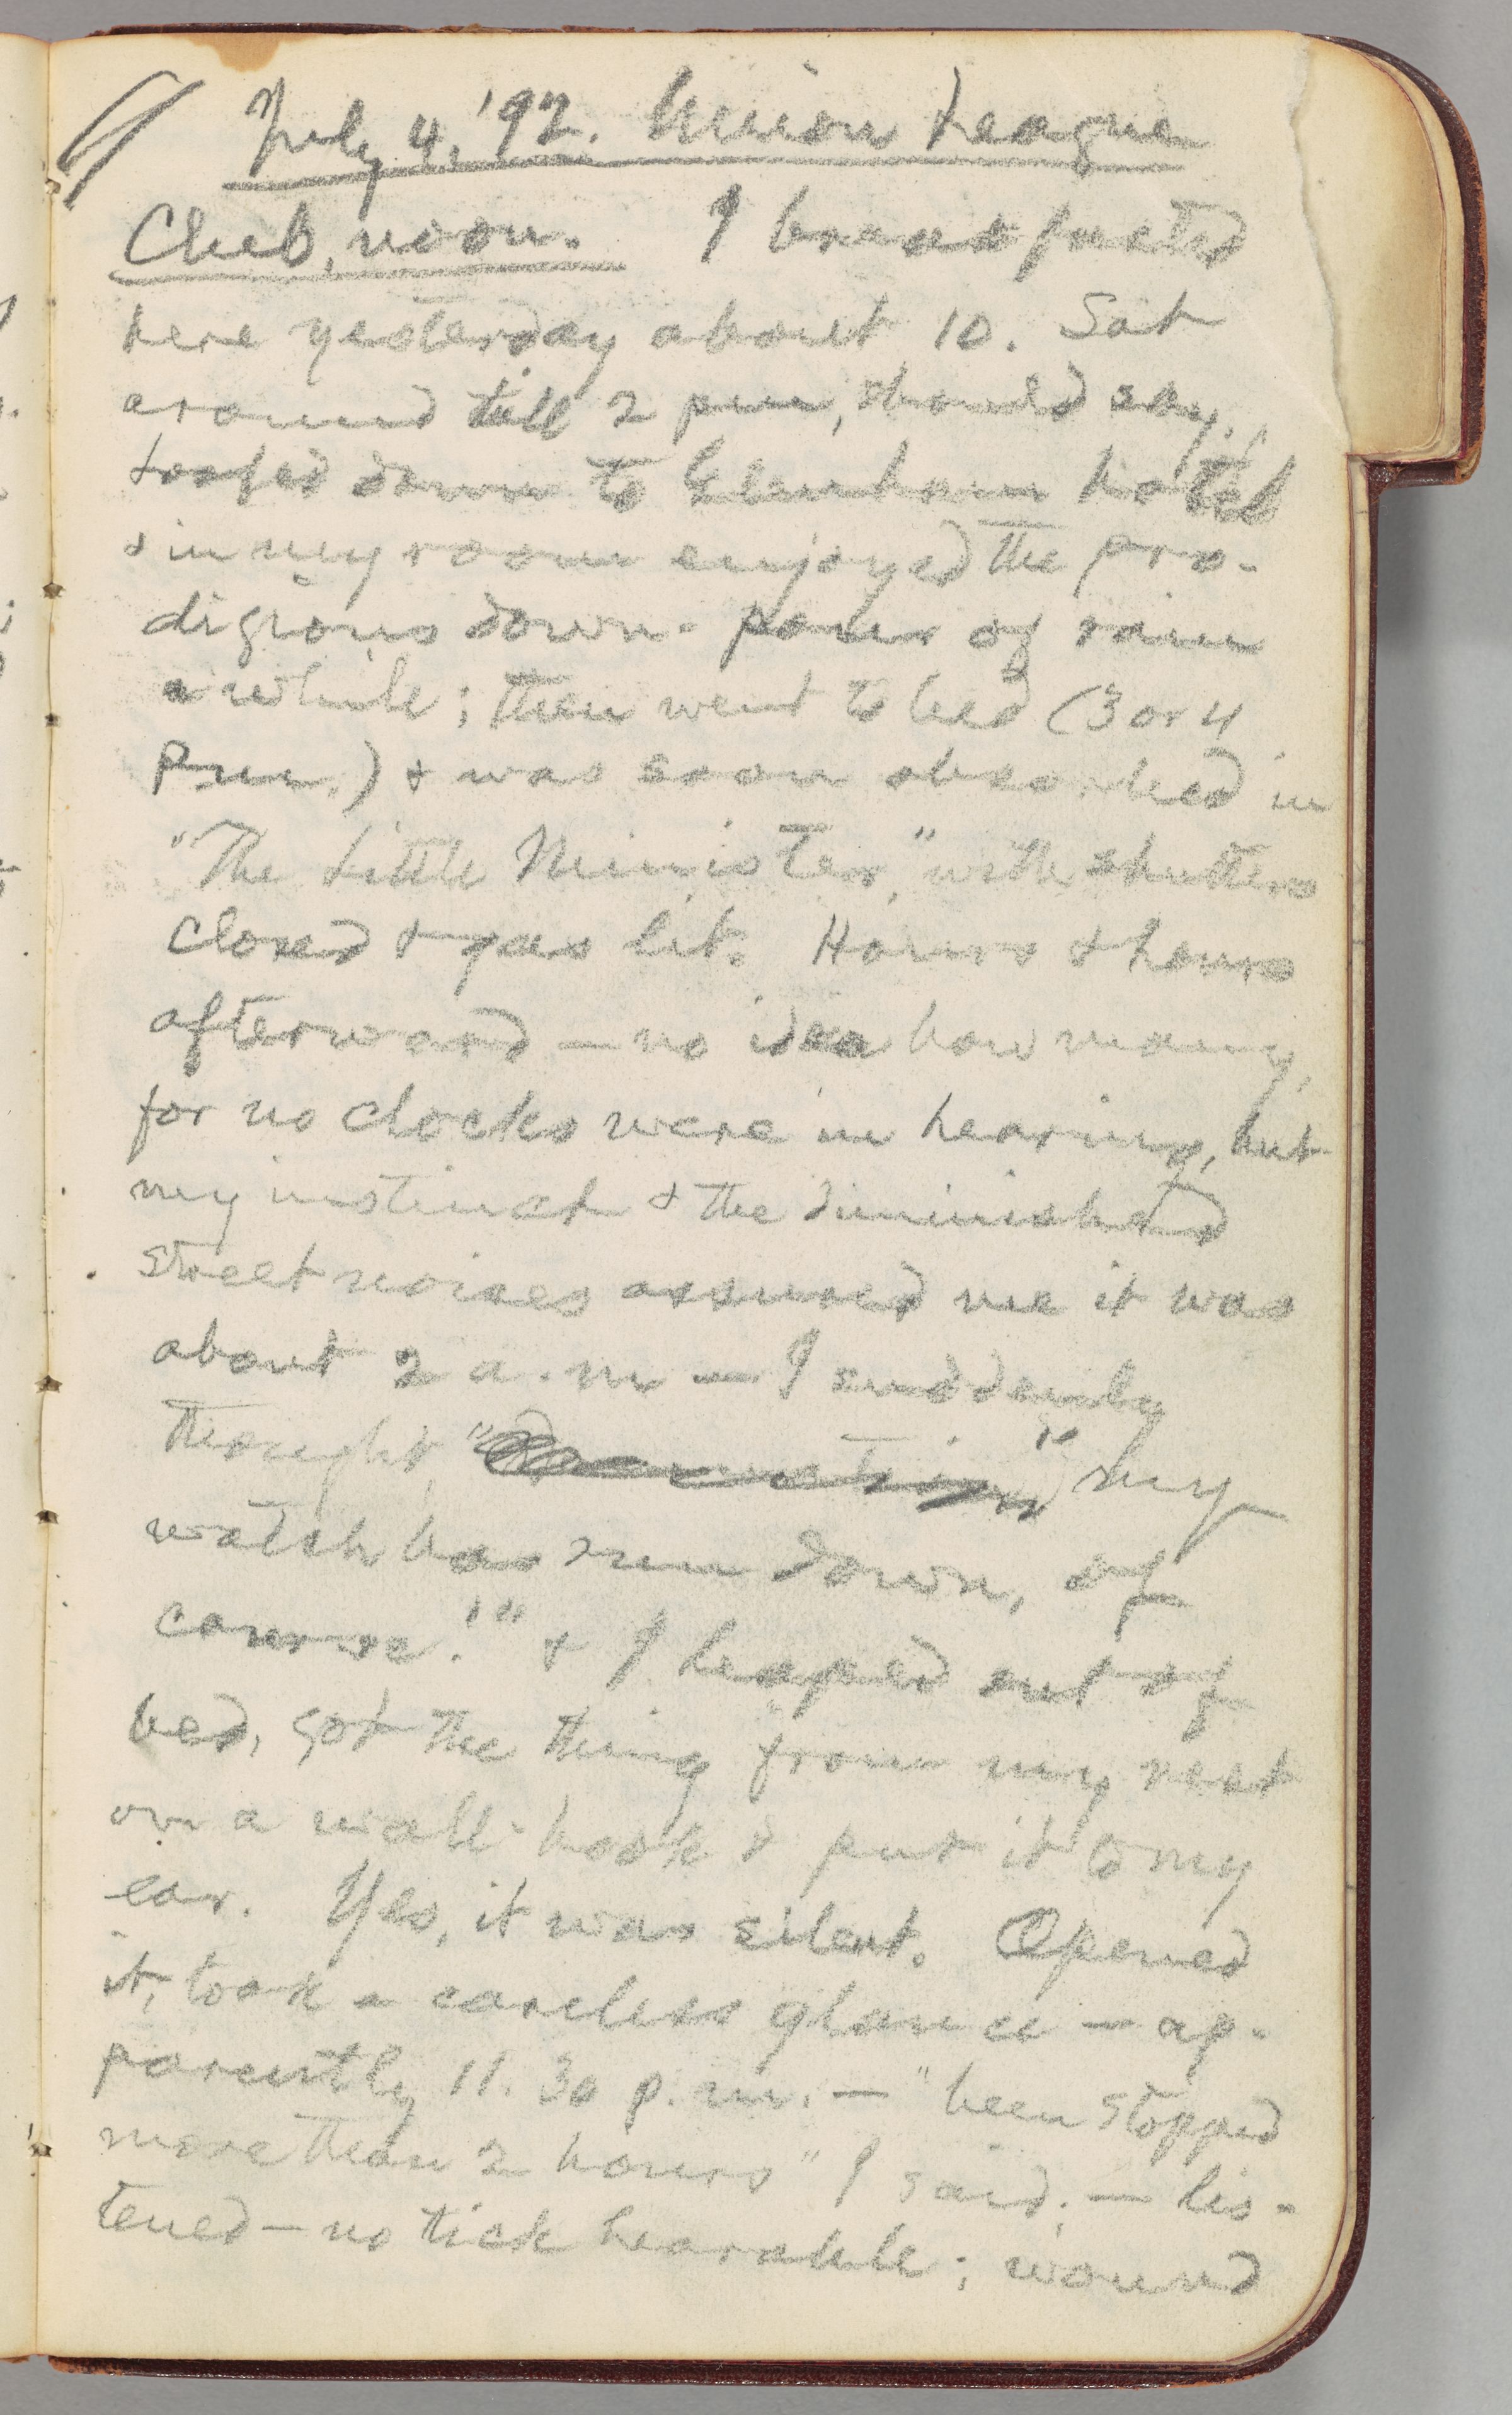 July 4, '92. Union League
Club, noon. I breakfasted
here yesterday about 10. Sat
around till 2 pm, should say.
Loafed down to Glenham hotel
& in my room enjoyed the pro-
digious down-pour of rain
a while; then went to bed (3 or 4
p.m.) & was soon absorbed in
"The Little Minister," with shutters
closed & gas lit. Hours & hours
afterward — no idea how many,
for no clocks were in hearing, but
my instinct & the diminished
street noises assured me it was
about 2 a.m — I suddenly
thought, "Damnation," my
watch has run down, of
course!" & I leaped out of
bed, got the thing from my vest
on a wall-hook & put it to my
ear. Yes, it was silent. Opened
it, took a careless glance — ap-
parently 11.30 p.m. — "been stopped
more than 2 hours" I said; — lis-
tened — no tick hearable; wound